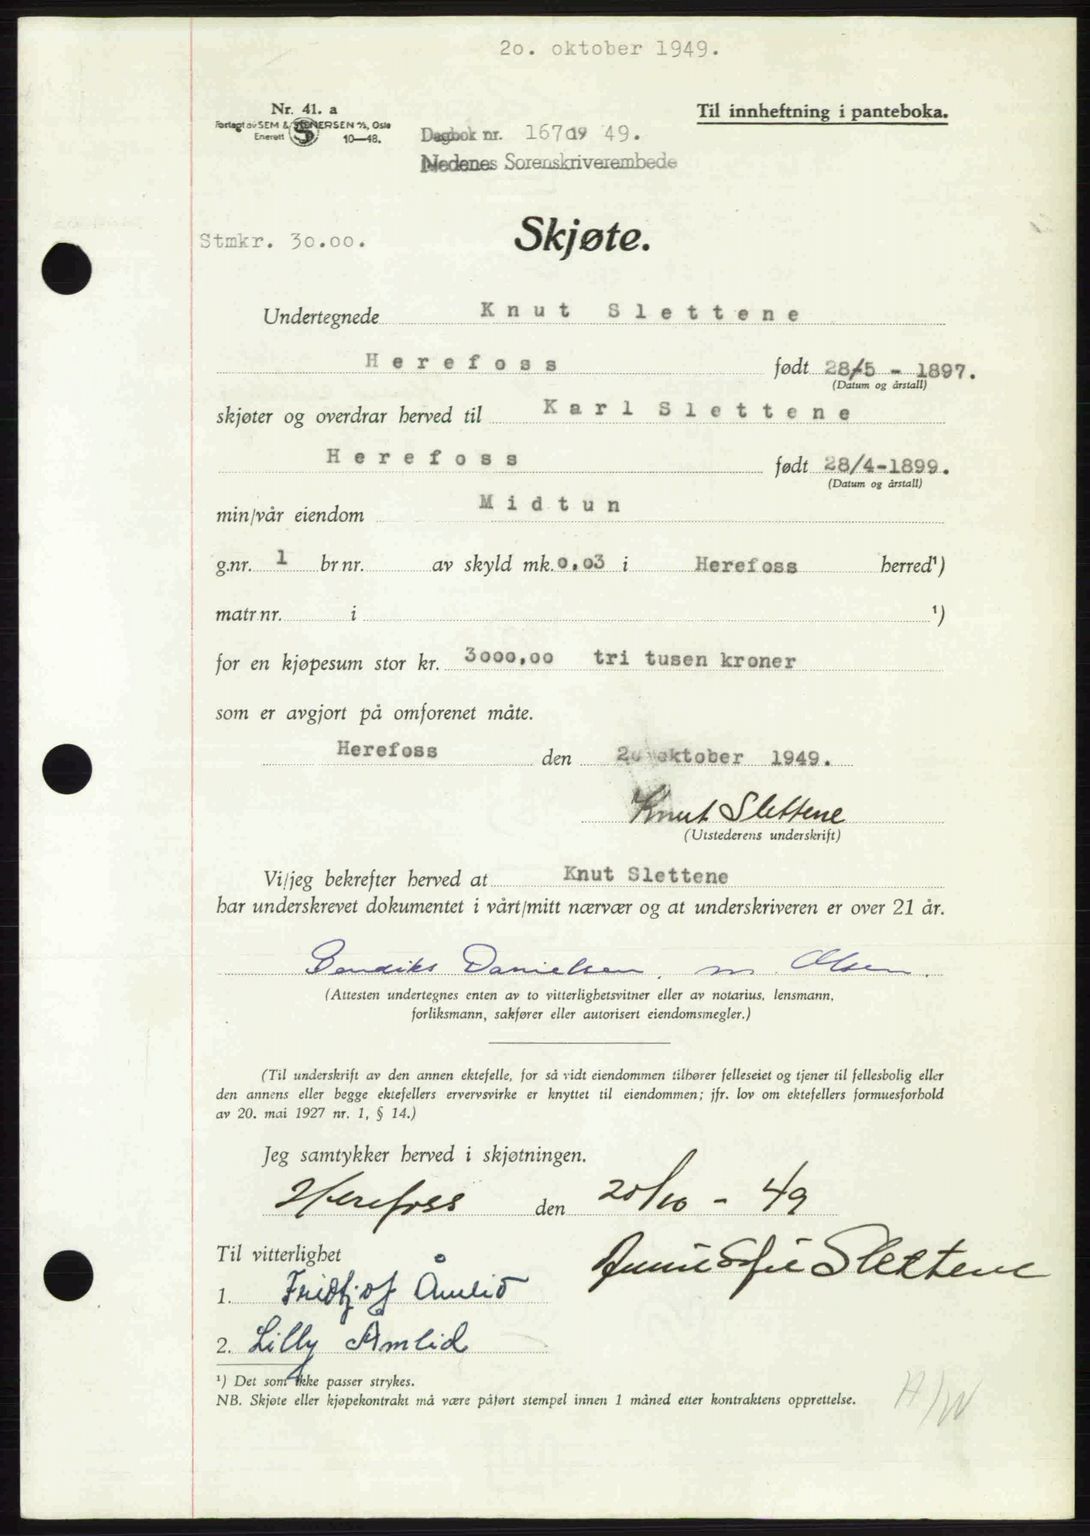 20. oktober 1949.
Nr. 41. a
Forlagt av SEM & STENERSEN A/S, Oslo
Enerett 10—48.
Til innheftning i panteboka.
Dagbok nr. 1670 19 49.
Nedenes Sorenskriverembede
Stmkr. 30.00.
Skjøte.
Undertegnede Knut Slettene
Herefoss født 28/5 - 1897.
(Datum og årstall)
skjøter og overdrar herved til Karl Slettene
Herefoss født 28/4-1899.
(Datum og årstall)
min/vår eiendom Midtun
g.nr. 1 br nr. av skyld mk. 0,03 i Herefoss herred¹)
matr nr. i ¹)
for en kjøpesum stor kr. 3000,00 tri tusen kroner
som er avgjort på omforenet måte.
Herefoss den 20 oktober 1949.
Knut Slettene
(Utstederens underskrift)
Vi/jeg bekrefter herved at Knut Slettene
har underskrevet dokumentet i vårt/mitt nærvær og at underskriveren er over 21 år.
Bendiks Danielsen. m. Olsen.
(Attesten undertegnes enten av to vitterlighetsvitner eller av notarius, lensmann,
forliksmann, sakfører eller autorisert eiendomsmegler.)
(Til underskrift av den annen ektefelle, for så vidt eiendommen tilhører felleseiet og tjener til fellesbolig eller
den annens eller begge ektefellers ervervsvirke er knyttet til eiendommen; jfr. lov om ektefellers formuesforhold
av 20. mai 1927 nr. 1, § 14.)
Jeg samtykker herved i skjøtningen.
Herefoss den 20/10 - 49
Til vitterlighet
Slettene
1. Fridtjof Åmlid
2. Lilly Åmlid
¹) Det som ikke passer strykes.
NB. Skjøte eller kjøpekontrakt må være påført stempel innen 1 måned etter kontraktens opprettelse.